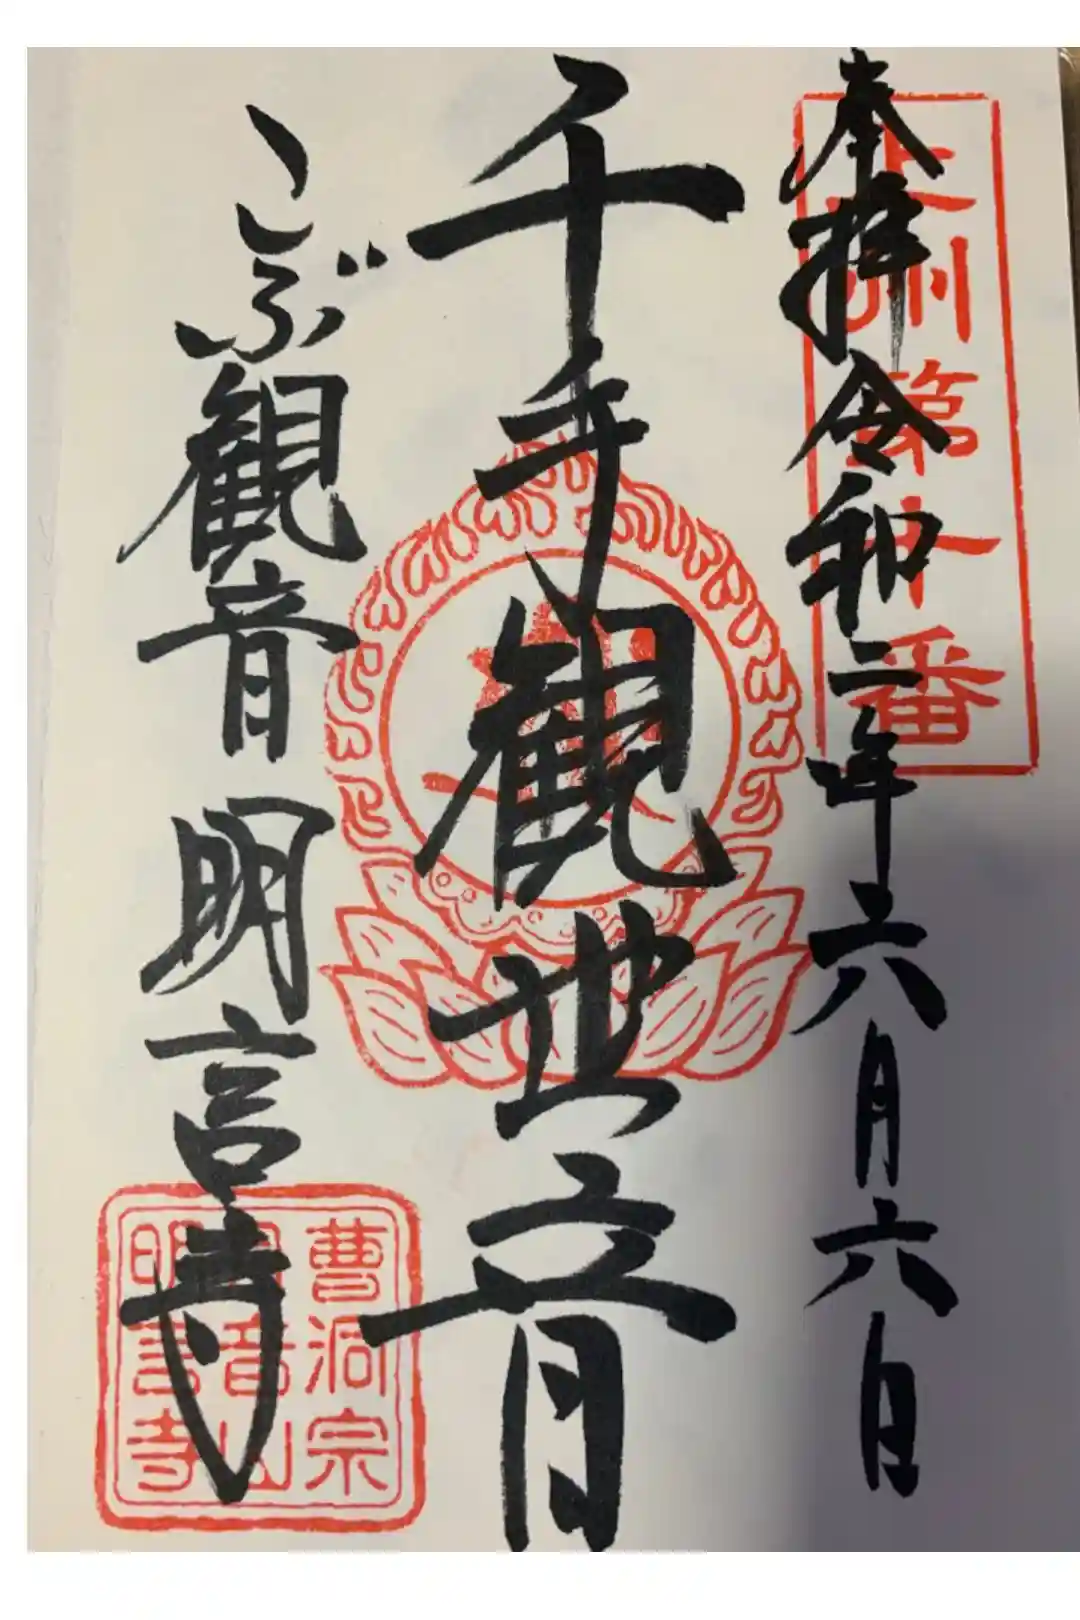 奉拝令和二年六月六日
上州第十番
千手観世音
こぶ観音明言寺
曹洞宗
観音山
明言寺